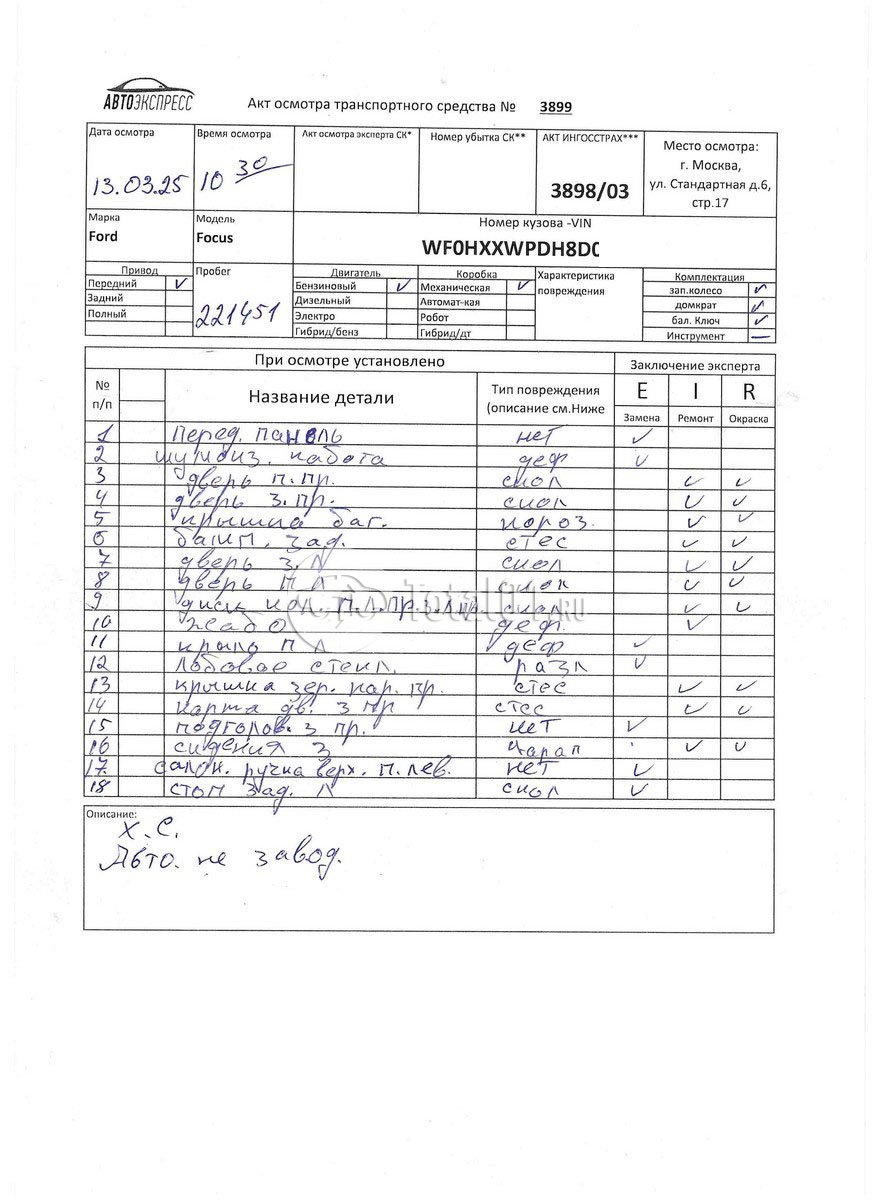 АВТОЭКСПРЕСС
Акт осмотра транспортного средства № 3899
Дата осмотра Время осмотра Акт осмотра эксперта СК* Номер убытка СК** АКТ ИНГОССТРАХ*** Место осмотра:
г. Москва,
ул. Стандартная д.6,
стр.17
13.03.25 10 30 3898/03
Марка Модель Номер кузова -VIN
Ford Focus WF0HXXWPDH8D
Привод Пробег Двигатель Коробка Характеристика повреждения Комплектация
Передний ✓ Бензиновый ✓ Механическая ✓ зап.колесо ✓
Задний Дизельный Автомат-кая домкрат ✓
Полный 221451 Электро Робот бал. Ключ ✓
Гибрид/бенз Гибрид/дт Инструмент —
При осмотре установлено Заключение эксперта
№ п/п Название детали Тип повреждения (описание см.Ниже E I R
Замена Ремонт Окраска
1 Перед. панель нет ✓
2 шумоиз. капота деф ✓
3 дверь п.пр. скол ✓ ✓
4 дверь з.пр. скол ✓ ✓
5 крышка баг. короз. ✓ ✓
6 бамп. зад. стес ✓ ✓
7 дверь з.л скол ✓ ✓
8 дверь п л скол ✓ ✓
9 диск кол. п.л.пр.з.л.пр. скол ✓ ✓
10 жабо деф. ✓
11 крыло п л деф ✓
12 Лобовое стекл. разл ✓
13 крышка зер. нар. пр. стес ✓ ✓
14 карта дв. з пр стес ✓ ✓
15 подголов. з пр. нет ✓
16 сидения з царап ✓ ✓
17. салон. ручка верх. п. лев. нет ✓
18 стоп зад. л скол ✓
Описание:
Х.С.
Авто. не завод.